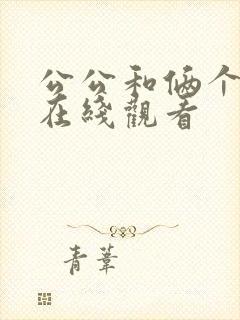 公公和俩个
在线觀看
青葦